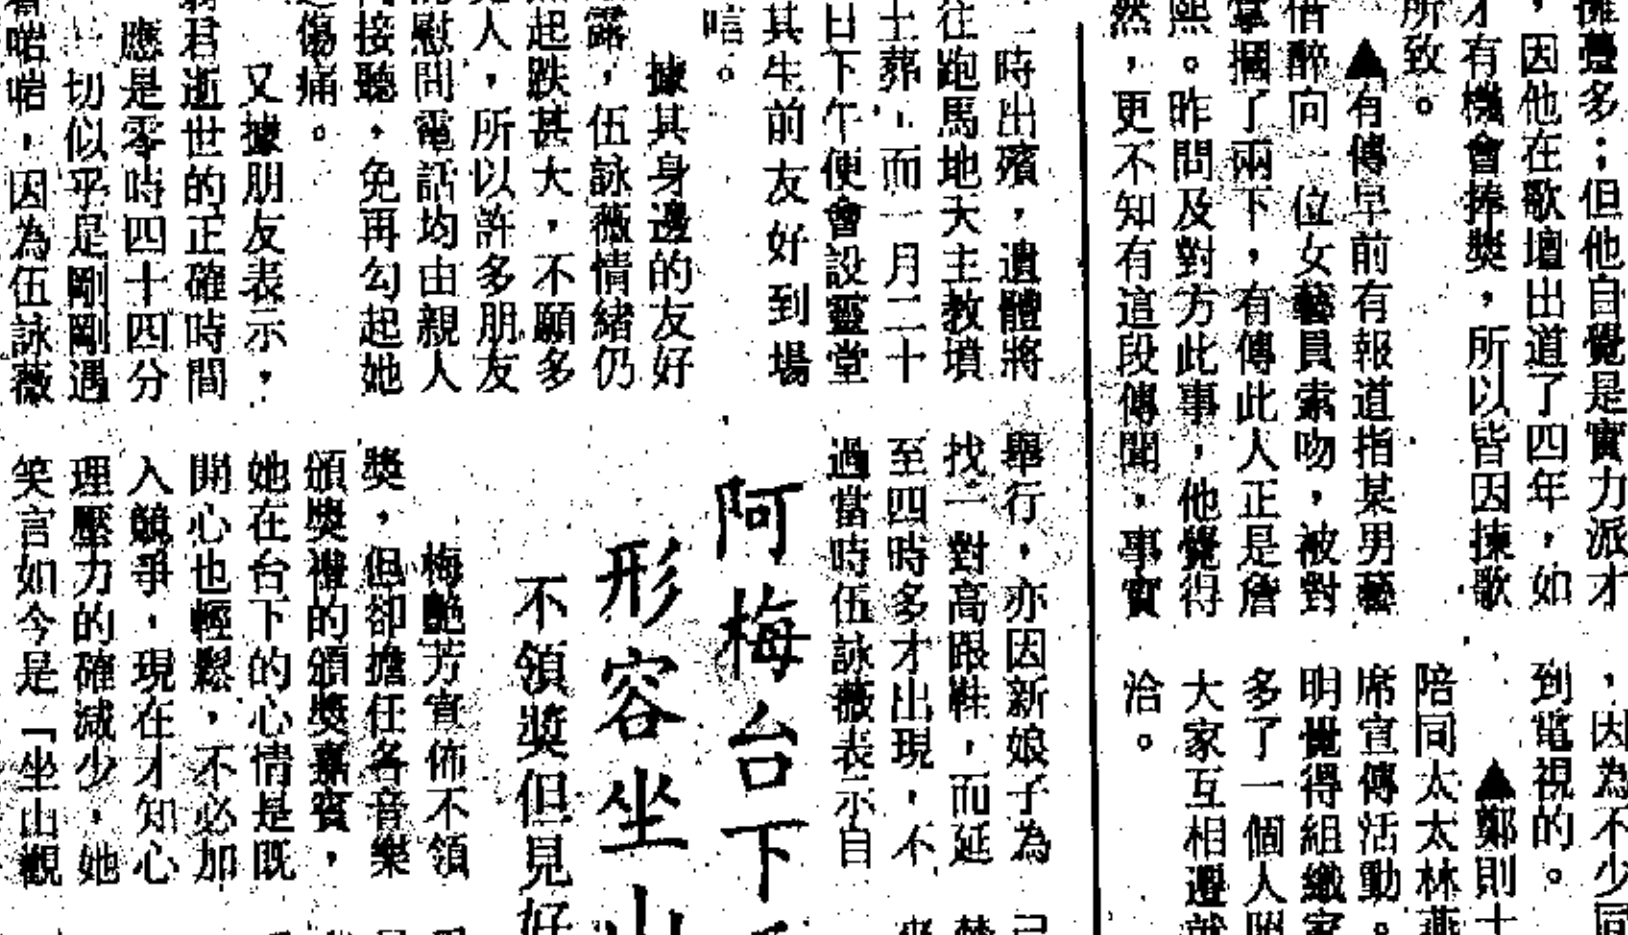 擁躉多;但他自覺是實力派才
,因他在歌壇出道了四年,如
才有機會捧獎,所以皆因揀歌
所致。
▲有傳早前有報道指某男藝
借醉向一位女藝員索吻,被對
掌摑了兩下,有傳此人正是詹
熙。昨問及對方此事,他覺得
然,更不知有這段傳聞,事實
,因為不少同
到電視的。
▲鄭則士
陪同太太林燕
席宣傳活動。
明覺得組織家
多了一個人照
大家互相遷就
洽。
一時出殯,遺體將
往跑馬地天主教墳
土葬,而一月二十
日下午便會設靈堂
其生前友好到場
唁。
據其身邊的友好
露,伍詠薇情緒仍
起跌甚大,不願多
人,所以許多朋友
慰問電話均由親人
接聽,免再勾起她
傷痛。
又據朋友表示,
君逝世的正確時間
應是零時四十四分
切似乎是剛剛遇
啱啱,因為伍詠薇
舉行,亦因新娘子為
找一對高跟鞋,而延
至四時多才出現,不
過當時伍詠薇表示自
阿梅台下
形容坐山
不領獎但見好
梅艷芳宣佈不領
獎,但卻擔任各音樂
頒獎禮的頒獎嘉賓,
她在台下的心情是既
開心也輕鬆,不必加
入競爭,現在才知心
理壓力的確減少,她
笑言如今是「坐山觀